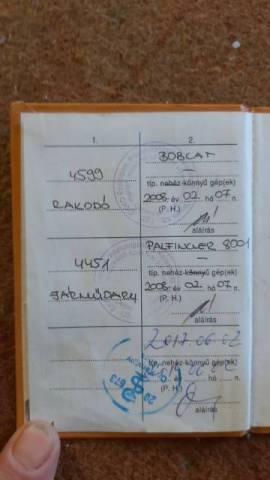 1. 2.
BOBCAT
4599 —
típ. nehéz-könnyű gép(ek)
2008. év 02. hó 07. n.
RAKODÓ (P. H.)
aláírás
PALFINGER 8001
4451 —
típ. nehéz-könnyű gép(ek)
2008. év 02. hó 07. n.
JÁRMŰDARU (P. H.)
aláírás
2017.06.02
típ. nehéz-könnyű gép(ek)
év hó n.
(P. H.)
aláírás